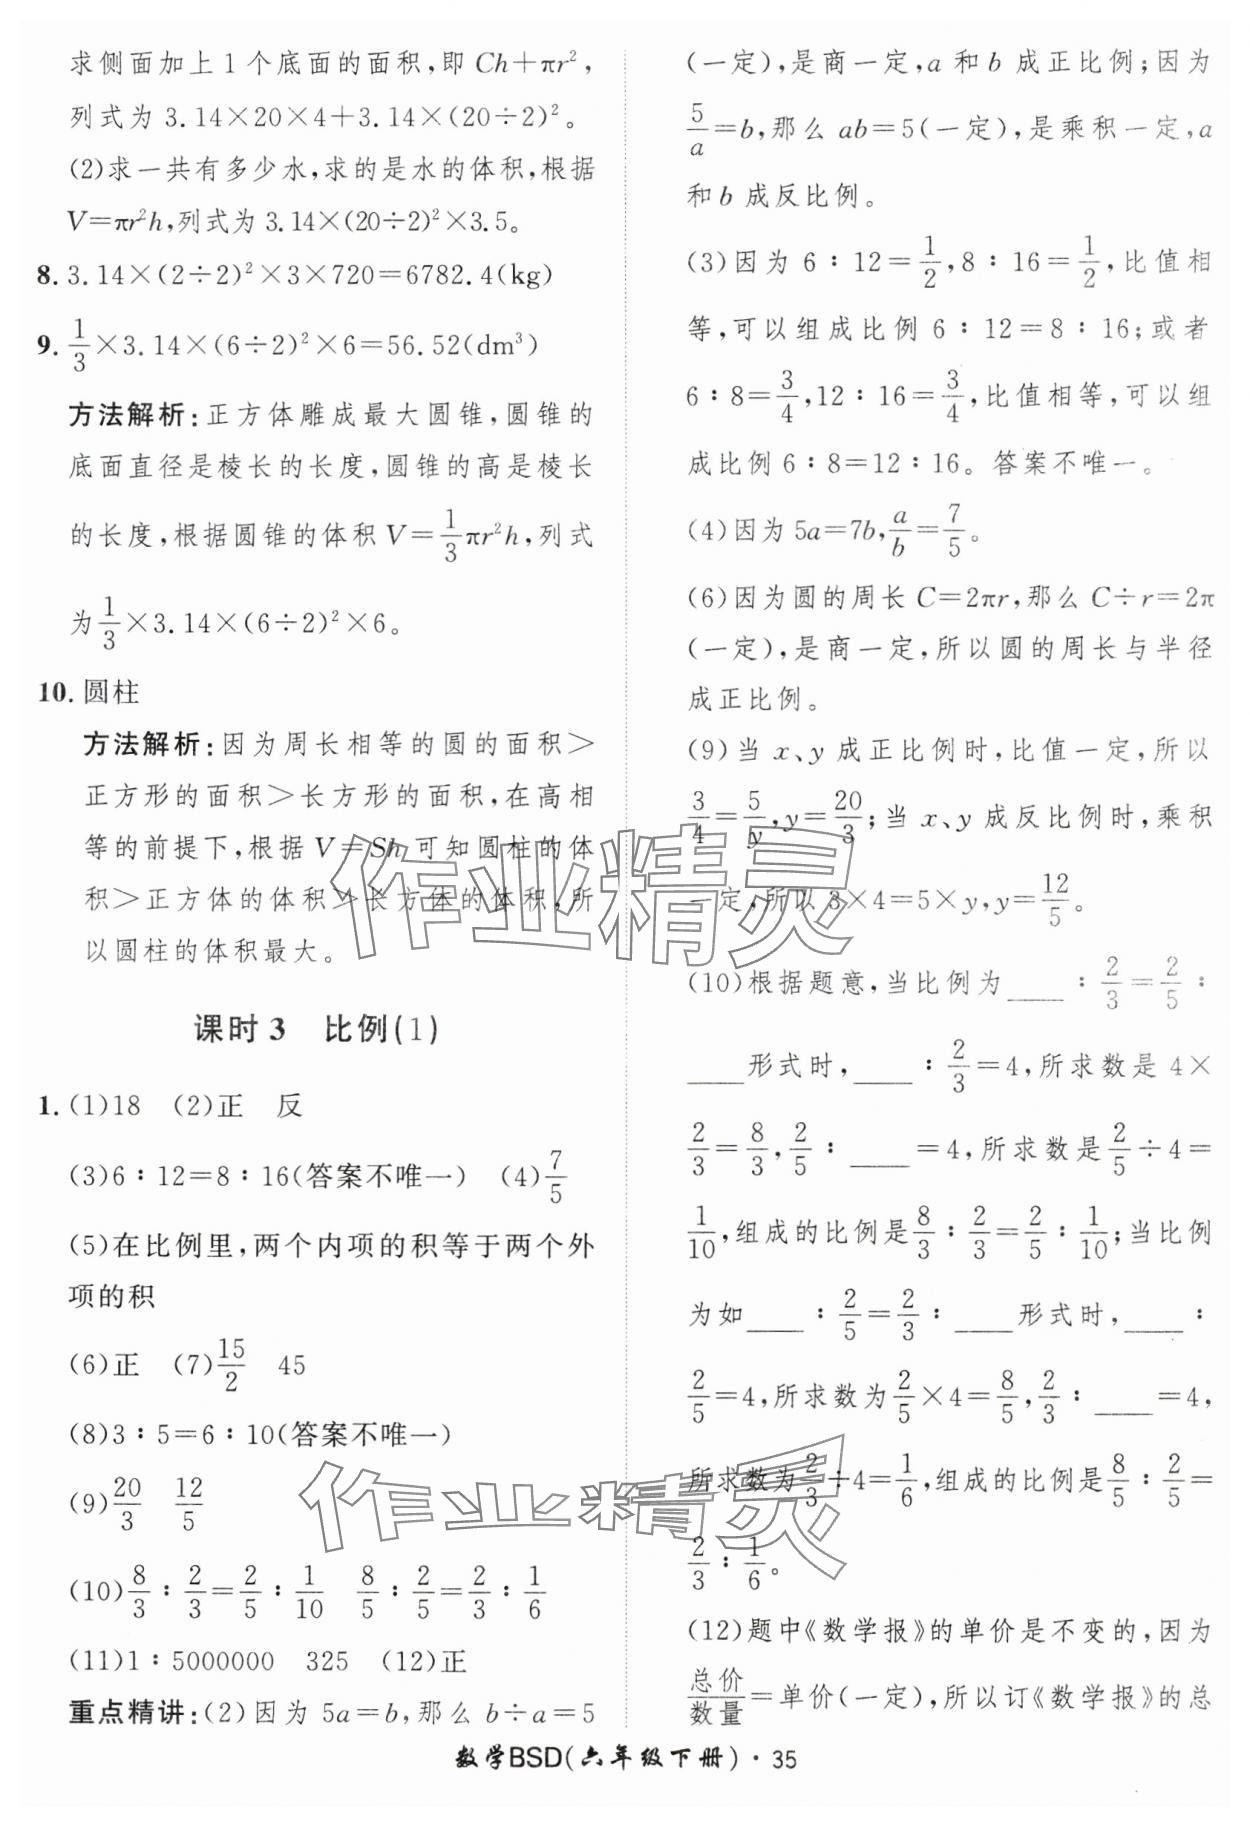 求侧面加上1个底面的面积,即Ch+πr²,
列式为3.14×20×4+3.14×(20÷2)²。
(2)求一共有多少水,求的是水的体积,根据
V=πr²h,列式为3.14×(20÷2)²×3.5。
8. 3.14×(2÷2)²×3×720=6782.4(kg)
9. 1/3×3.14×(6÷2)²×6=56.52(dm³)
方法解析:正方体雕成最大圆锥,圆锥的
底面直径是棱长的长度,圆锥的高是棱长
的长度,根据圆锥的体积V=1/3πr²h,列式
为1/3×3.14×(6÷2)²×6。
10. 圆柱
方法解析:因为周长相等的圆的面积>
正方形的面积>长方形的面积,在高相
等的前提下,根据V=Sh可知圆柱的体
积>正方体的体积>长方体的体积,所
以圆柱的体积最大。
课时3 比例(1)
1. (1)18 (2)正 反
(3)6∶12=8∶16(答案不唯一) (4)7/5
(5)在比例里,两个内项的积等于两个外
项的积
(6)正 (7)15/2 45
(8)3∶5=6∶10(答案不唯一)
(9)20/3 12/5
(10)8/3∶2/3=2/5∶1/10 8/5∶2/5=2/3∶1/6
(11)1∶5000000 325 (12)正
重点精讲:(2)因为5a=b,那么b÷a=5
(一定),是商一定,a和b成正比例;因为
5/a=b,那么ab=5(一定),是乘积一定,a
和b成反比例。
(3)因为6∶12=1/2,8∶16=1/2,比值相
等,可以组成比例6∶12=8∶16;或者
6∶8=3/4,12∶16=3/4,比值相等,可以组
成比例6∶8=12∶16。答案不唯一。
(4)因为5a=7b,a/b=7/5。
(6)因为圆的周长C=2πr,那么C÷r=2π
(一定),是商一定,所以圆的周长与半径
成正比例。
(9)当x、y成正比例时,比值一定,所以
3/4=5/y,y=20/3;当x、y成反比例时,乘积
一定,所以3×4=5×y,y=12/5。
(10)根据题意,当比例为____∶2/3=2/5∶
____形式时,____∶2/3=4,所求数是4×
2/3=8/3,2/5∶____=4,所求数是2/5÷4=
1/10,组成的比例是8/3∶2/3=2/5∶1/10;当比例
为如____∶2/5=2/3∶____形式时,____∶
2/5=4,所求数为2/5×4=8/5,2/3∶____=4,
所求数为2/3÷4=1/6,组成的比例是8/5∶2/5=
2/3∶1/6。
(12)题中《数学报》的单价是不变的,因为
总价/数量=单价(一定),所以订《数学报》的总
数学BSD(六年级下册)·35
作业精灵
作业精灵